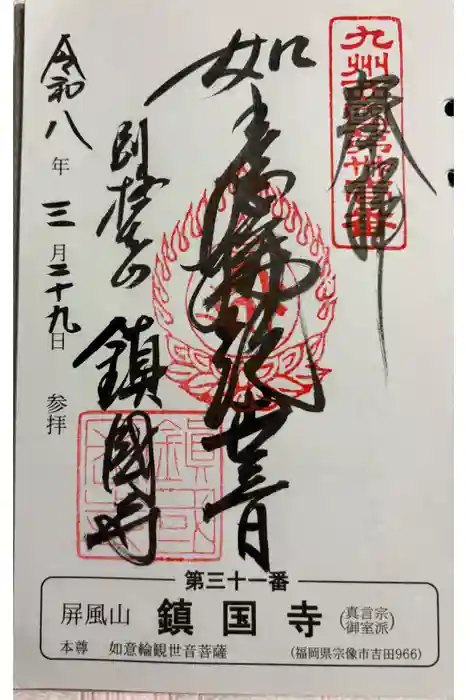 奉拝
九州西國第丗壹番
如意輪観世音
別格本山 鎮國寺
令和八年三月二十九日 参拝
第三十一番
屏風山 鎮国寺 (真言宗御室派)
本尊 如意輪観世音菩薩 (福岡県宗像市吉田966)